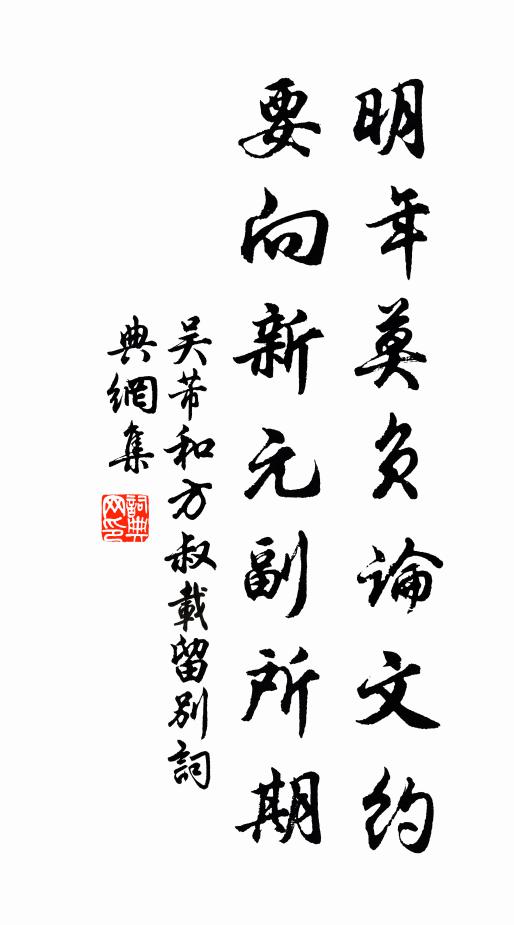 明年莫负論文約
要向新元副所期
吴芾和方叔載留别詞
典網集
詞典网印